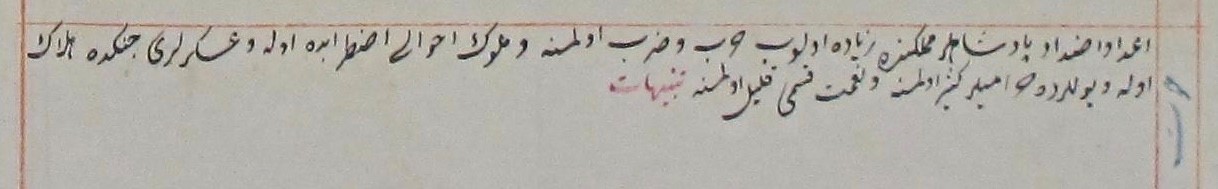 اعدا واضداد پادشاهلر مملكتنده زياده اولوب حرب و ضرب اولمنه و ملوك احوالى اضطرابده اوله و عسكرلرى جنكده هلاك
اوله و يوللرده حراميلر كثير اولمنه و نعمت قسمى قليل اولمنه تنبيهات